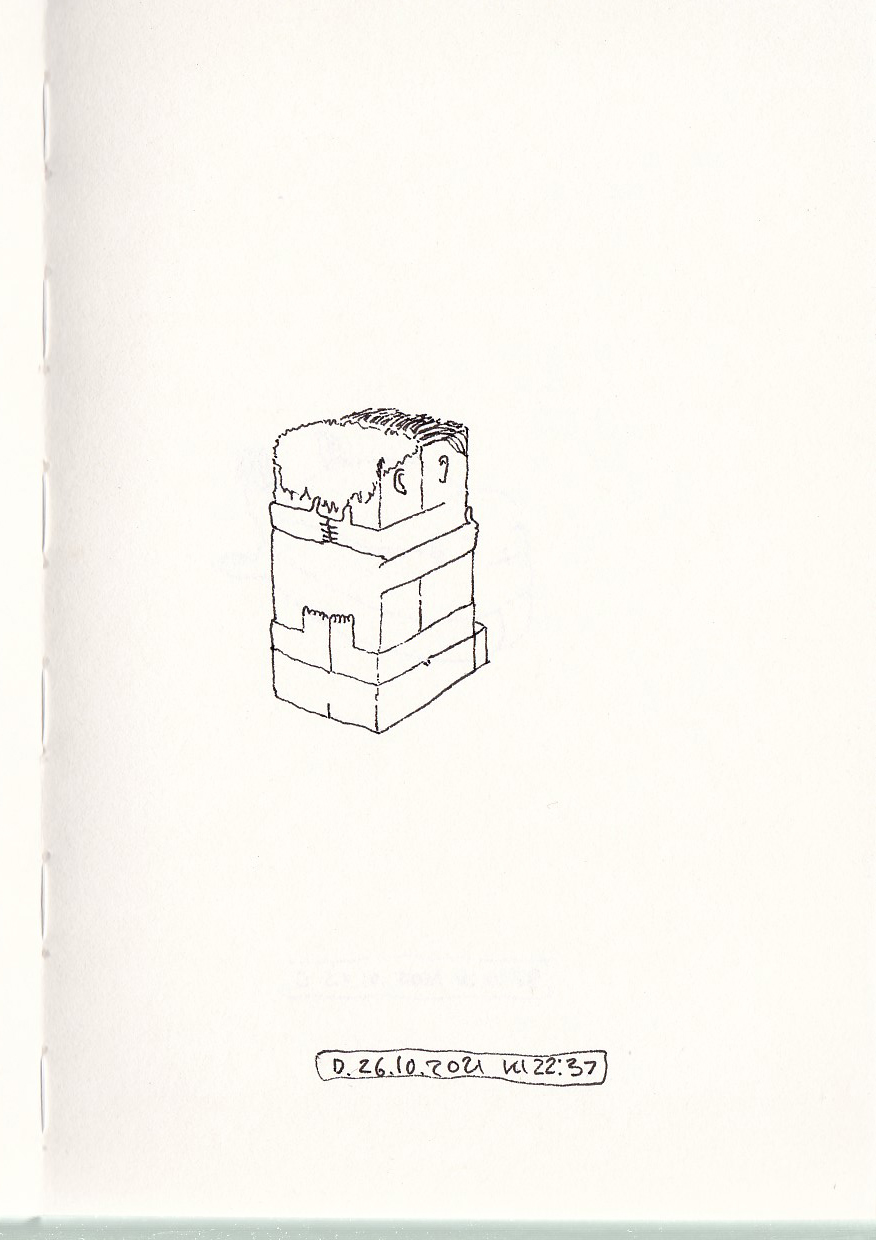 D. 26.10.2021 kl 22:37